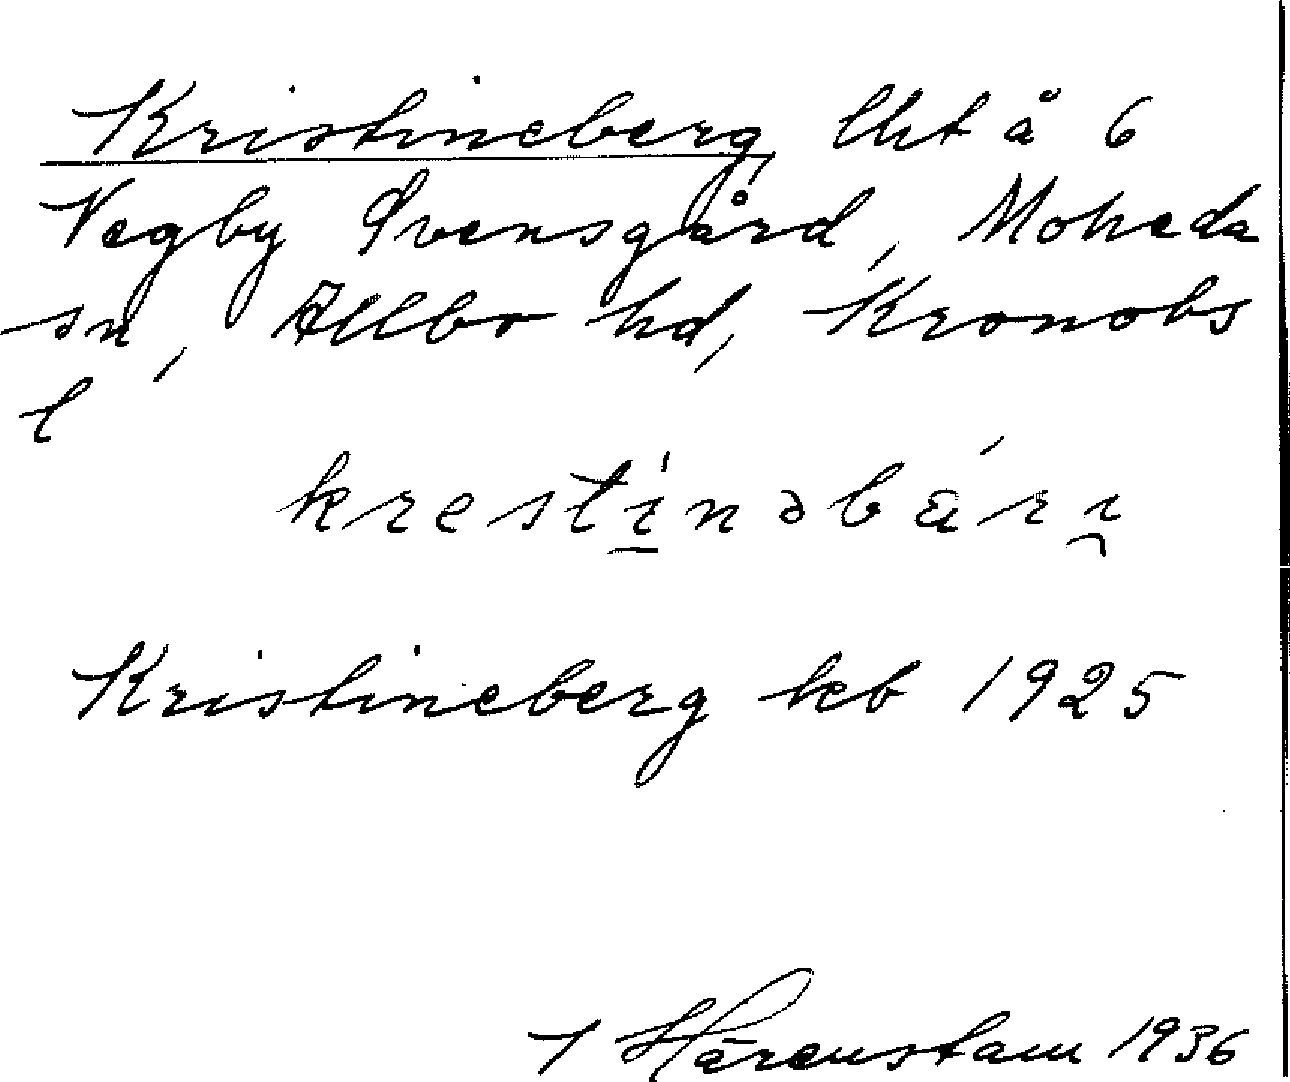 Kristineberg, lht å 6
Vegby Svensgård, Moheda
sn, Allbo hd, Kronobs
l
krestinəbári
Kristineberg kb 1925
I Härenstam 1936